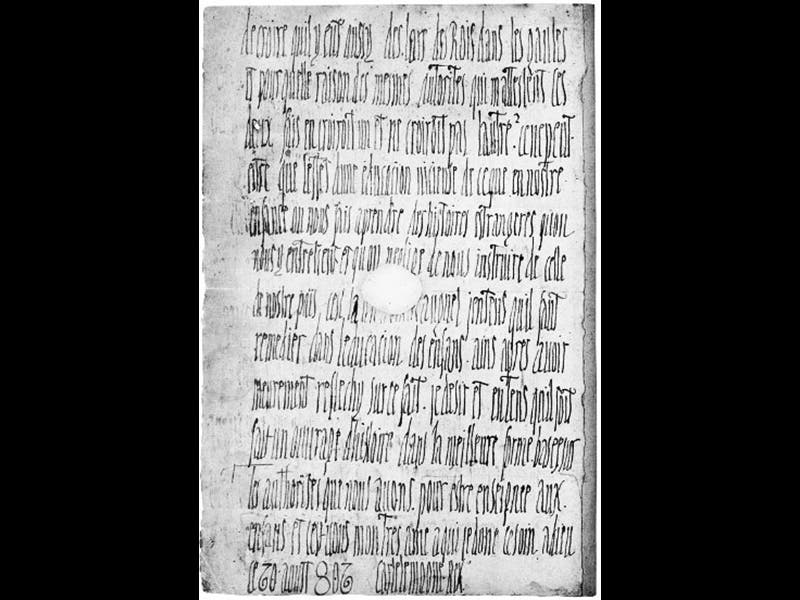 de croire quil y eut aussy des Rois dans les gaules
Et pour quelle raison des mesmes Autorites qui mattestent ces
deux fais en croiroit un et ne croiroit pas lautre? ce ne peut
estre que leffet dune education viciense de ce que en nostre
enfance on nous fais aprendre des histoires estrangeres quon
nous y entretient et quon neglige de nous instruire de celle
de nostre païs, cest la auquel jentens quil faut
remedier dans leducation des enfans. ains apres avoir
meurement reflechy sur ce fait. je desir et entens quil soit
fait un ouvrage dhistoire dans la meilleure forme basee sur
les authorites que nous avons. pour estre enseignee aux
enfans et cest vous mon tres ame a qui je done ce soin. adieu
ce 20 aoust 802